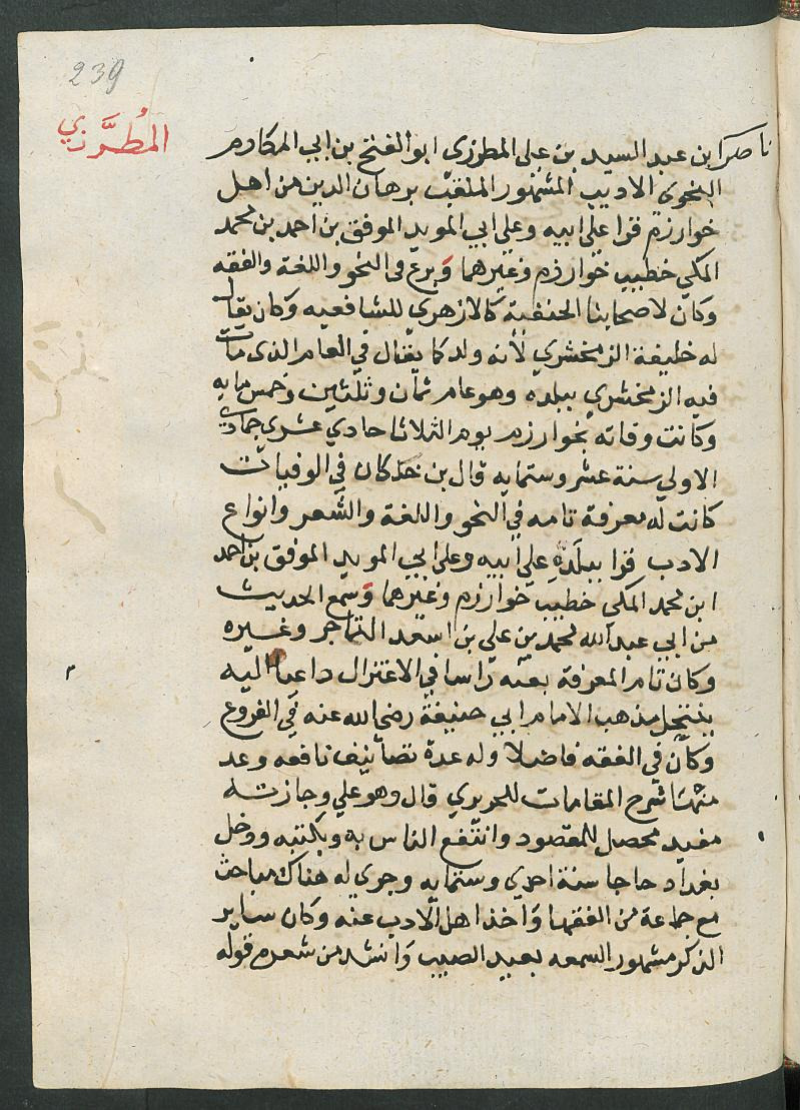 239
المُطرَّزي
ناصر ابن عبد السيد بن علي المطرزى ابو الفتح بن ابي المكارم
النحوي الاديب المشهور الملقب برهان الدين من اهل
خوارزم قرا علي ابيه وعلي ابي المويد الموفق بن احمد بن محمد
المكي خطيب خوارزم وغيرهما وَبرع فى النحو واللغة والفقه
وكان لاصحابنا الحنفية كالازهري للشافعيه وكان يقال
له خليفة الزمخشري لأنه ولد كما يقال في العام الذى مات
فيه الزمخشري ببلده وهو عام ثمان وثلثين وخمس مايه
وكانت وفاته بخوارزم يوم الثلاثا حادي عشري جمادي
الاولي سنة عشر وستمايه قال بن خلكان في الوفيات
كانت له معرفة تامه في النحو واللغة والشعر وانواع
الادب قرا ببلده علي ابيه وعلي ابي المويد الموفق بن احمد
ابن محمد المكي خطيب خوارزم وغيرهما وَسمع الحديث
من ابي عبد الله محمد بن علي بن اسعد التاجر وغيره
وكان تام المعرفة بفنه راسا في الاعتزال داعيا اليه
ينتحل مذهب الامام ابي حنيفة رضي الله عنه في الفروع
وكان في الفقه فاضلا وله عدة تصانيف نافعه وعد
منها شرح المقامات للحريري قال وهو علي وجازته
مفيد محصل للمقصود وانتفع الناس به وبكتبه ودخل
بغداد حاجا سنة احدي وستمايه وجري له هناك مباحث
مع جماعة من الفقها وَاخذ اهل الادب عنه وكان ساير
الذكر مشهور السمعه بعيد الصيت وَانشد من شعره قوله